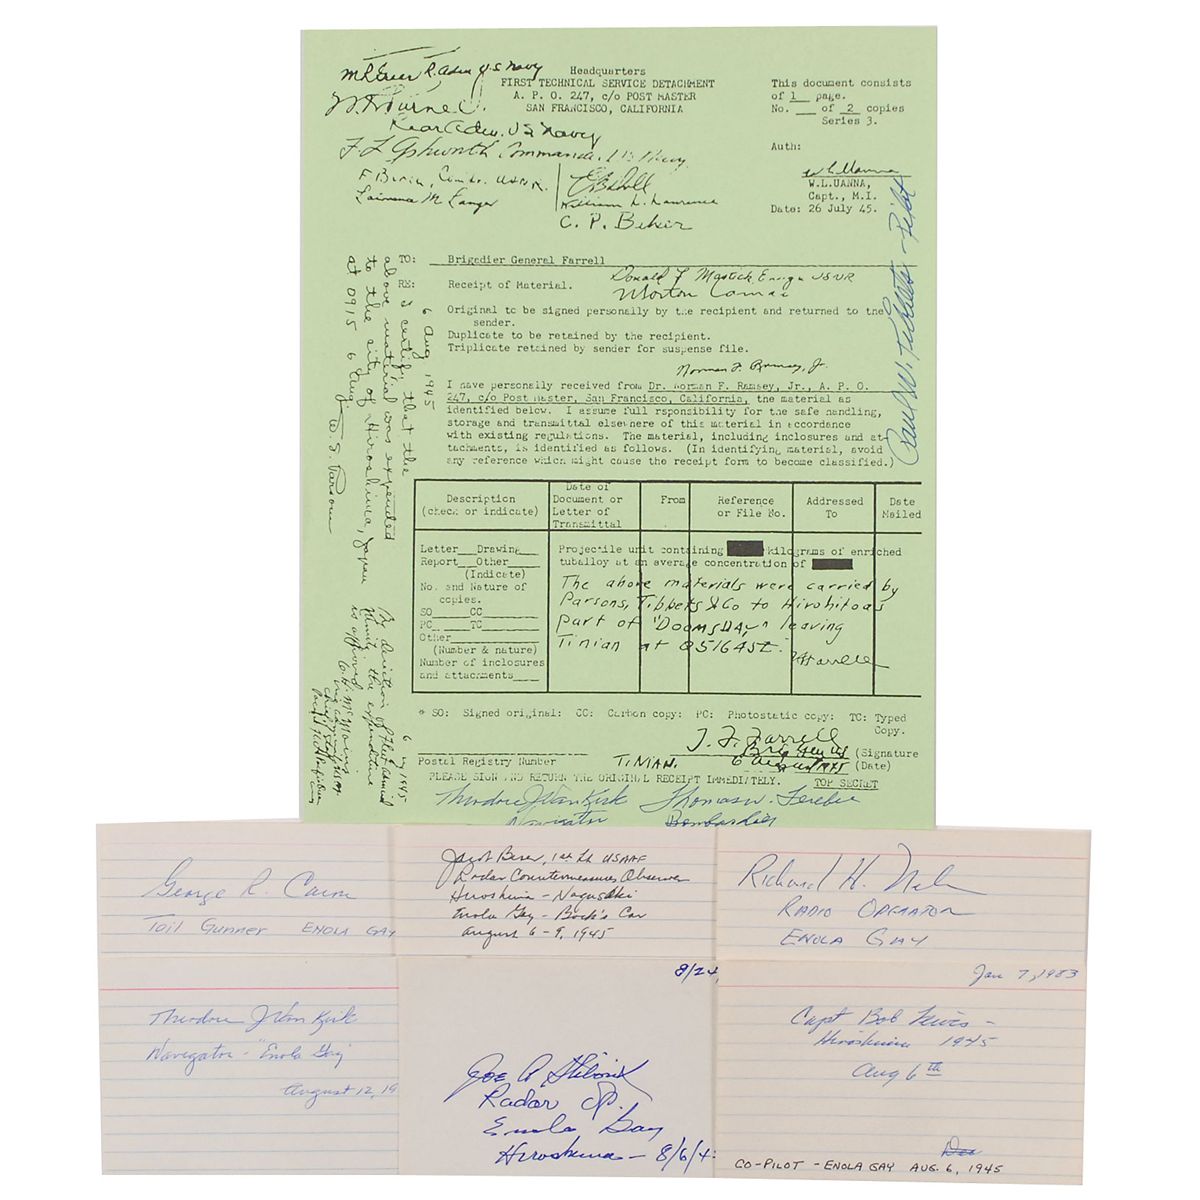 Rear Adm. U.S. Navy
Rear Adm. US Navy
F L Ashworth Commander, US Navy
F Birch, Comdr. USNR.
William L. Laurence
C. P. Baker
Headquarters
FIRST TECHNICAL SERVICE DETACHMENT
A. P. O. 247, c/o POST MASTER
SAN FRANCISCO, CALIFORNIA
This document consists
of 1 page.
No. __ of 2 copies
Series 3.
Auth:
W.L.UANNA,
Capt., M.I.
Date: 26 July 45.
Paul W. Tibbets - Pilot
TO: Brigadier General Farrell
Donald F Mastick Ensign USNR
Morton Camac
RE: Receipt of Material.
Original to be signed personally by the recipient and returned to the
sender.
Duplicate to be retained by the recipient.
Triplicate retained by sender for suspense file.
Norman F. Ramsey, Jr.
I have personally received from Dr. Norman F. Ramsey, Jr., A. P. O.
247, c/o Post Master, San Francisco, California, the material as
identified below. I assume full rsponsibility for the safe handling,
storage and transmittal elsewhere of this material in accordance
with existing regulations. The material, including inclosures and at-
tachments, is identified as follows. (In identifying material, avoid
any reference which might cause the receipt form to become classified.)
6 Aug 1945
I certify that the
above material was expended
to the city of Hiroshima, Japan
at 0915 6 Aug
W. S. Parsons
6 Aug 1945
By direction of Fleet Admiral
Nimitz, the expenditure
is approved
Description
(check or indicate)
Date of
Document or
Letter of
Transmittal
From
Reference
or File No.
Addressed
To
Date
Mailed
Letter___Drawing___
Report___Other____
(Indicate)
No. and Nature of
copies.
SO____CC____
PC____TC____
Other____
(Number & nature)
Number of inclosures
and attachments____
Projectile unit containing kilograms of enriched
tuballoy at an average concentration of
The above materials were carried by
Parsons, Tibbets & Co to Hirohitoas
part of "Doomsday" leaving
Tinian at 051645Z.
TFFarrell
* SO: Signed original: CC: Carbon copy: PC: Photostatic copy: TC: Typed
Copy.
T. F. Farrell
Brig Gen US (Signature
Postal Registry Number TINIAN. 6 August 1945 (Date)
PLEASE SIGN AND RETURN THE ORIGINAL RECEIPT IMMEDIATELY. TOP SECRET
Theodore J Van Kirk
Navigator
Thomas W. Ferebee
Bombardier
George R. Caron
Tail Gunner ENOLA GAY
Jacob Beser, 1st Lt USAAF
Radar Countermeasures Observer
Hiroshima - Nagasaki
Enola Gay - Bock's Car
August 6 - 9, 1945
Richard H. Nelson
RADIO OPERATOR
ENOLA GAY
Theodore J Van Kirk
Navigator - "Enola Gay"
August 12, 19
8/24,
Joe A Stiborik
Radar Op.
Enola Gay
Hiroshima - 8/6/4
Jan 7, 1983
Capt Bob Lewis -
Hiroshima 1945
Aug 6th
CO-PILOT - ENOLA GAY AUG. 6, 1945